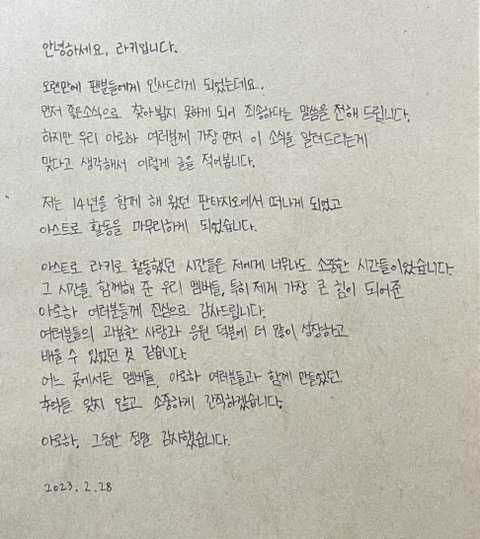 안녕하세요, 라키입니다.
오랜만에 팬분들에게 인사드리게 되었는데요..
먼저 좋은소식으로 찾아뵙지 못하게 되어 죄송하다는 말씀을 전해 드립니다.
하지만 우리 아로하 여러분께 가장 먼저 이 소식을 알려드리는게
맞다고 생각해서 이렇게 글을 적어봅니다.
저는 14년을 함께 해 왔던 판타지오에서 떠나게 되었고
아스트로 활동을 마무리하게 되었습니다.
아스트로 라키로 활동했던 시간들은 저에게 너무나도 소중한 시간들이었습니다.
그 시간을 함께해 준 우리 멤버들, 특히 제게 가장 큰 힘이 되어준
아로하 여러분들께 진심으로 감사드립니다.
여러분들의 과분한 사랑과 응원 덕분에 더 많이 성장하고
배울 수 있었던 것 같습니다.
어느 곳에서든 멤버들, 아로하 여러분들과 함께 만들었던
추억들 잊지 않고 소중하게 간직하겠습니다.
아로하, 그동안 정말 감사했습니다.
2023. 2. 28